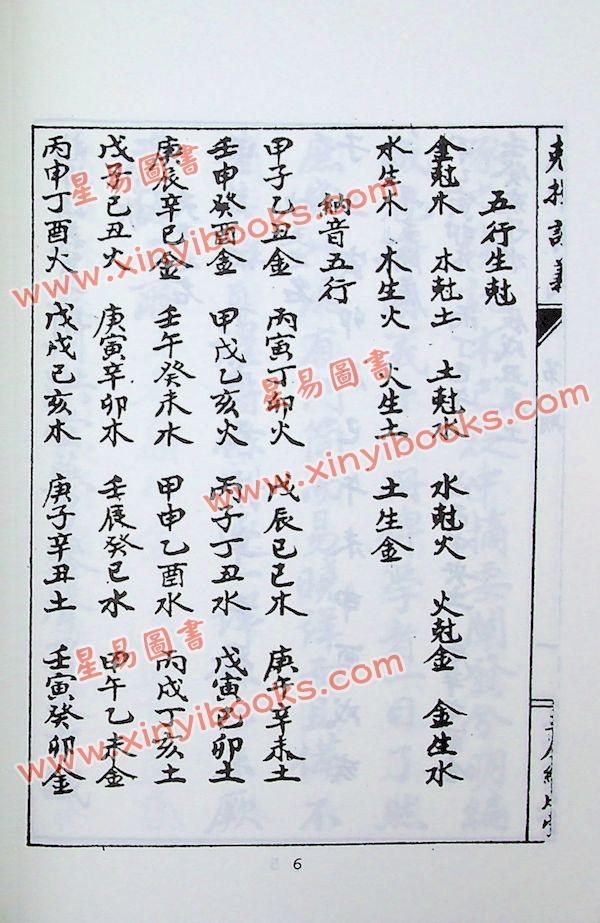 五行生尅
金尅木 木尅土 土尅水 水尅火 火尅金 金生水
水生木 木生火 火生土 土生金
納音五行
甲子乙丑金 丙寅丁卯火 戊辰己巳木 庚午辛未土
壬申癸酉金 甲戌乙亥火 丙子丁丑水 戊寅己卯土
庚辰辛巳金 壬午癸未木 甲申乙酉水 丙戌丁亥土
戊子己丑火 庚寅辛卯木 壬辰癸巳水 甲午乙未金
丙申丁酉火 戊戌己亥木 庚子辛丑土 壬寅癸卯金
6
星易圖書
www.xinyibooks.com
星易圖書
www.xinyibooks.com
星易圖書
www.xinyibooks.com